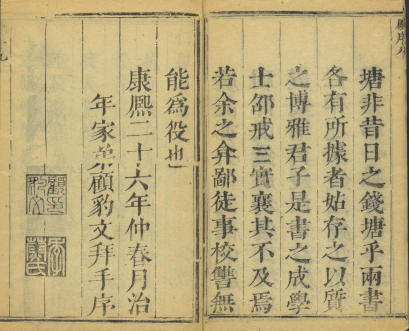 塘非昔日之錢塘乎兩書
各有所據者姑存之以質
之博雅君子是書之成學
士邵戒三實襄其不及焉
若余之弇鄙徒事校讐無
能爲役也
康熈二十六年仲春月治
年家弟顧豹文拜手序